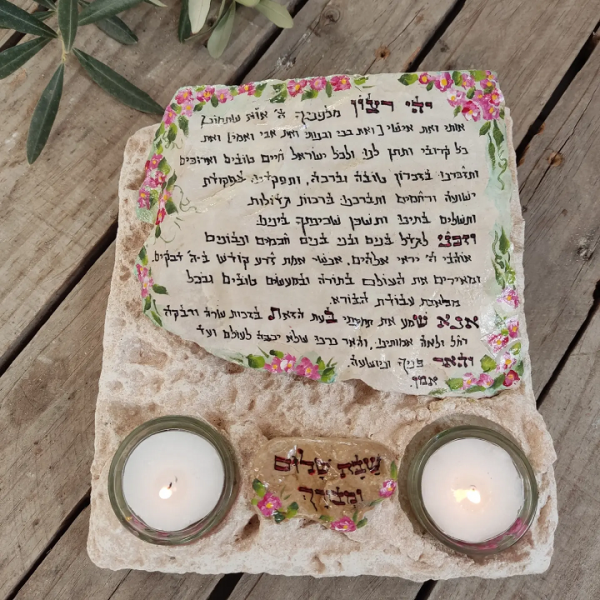 יהי רצון מלפניך ה' אלהי שתחונן
אותי ואת אישי [ואת בני ובנותי ואת אבי ואמי] ואת
כל קרובי ותתן לנו ולכל ישראל חיים טובים וארוכים
ותזכרנו בזכרון טובה וברכה, ותפקדינו בפקודת
ישועה ורחמים ותברכנו ברכות גדולות
ותשלים בתינו ותשכן שכינתך בינינו.
וזכני לגדל בנים ובני בנים חכמים ונבונים
אוהבי ה' יראי אלהים, אנשי אמת זרע קודש בה' דבקים,
ומאירים את העולם בתורה ובמעשים טובים ובכל
מלאכת עבודת הבורא.
אנא שמע את תחנתי בעת הזאת בזכות שרה ורבקה
רחל ולאה אמותינו, והאר נרנו שלא יכבה לעולם ועד
והאר פניך ונושעה
אמן.
שבת שלום
ומבורך